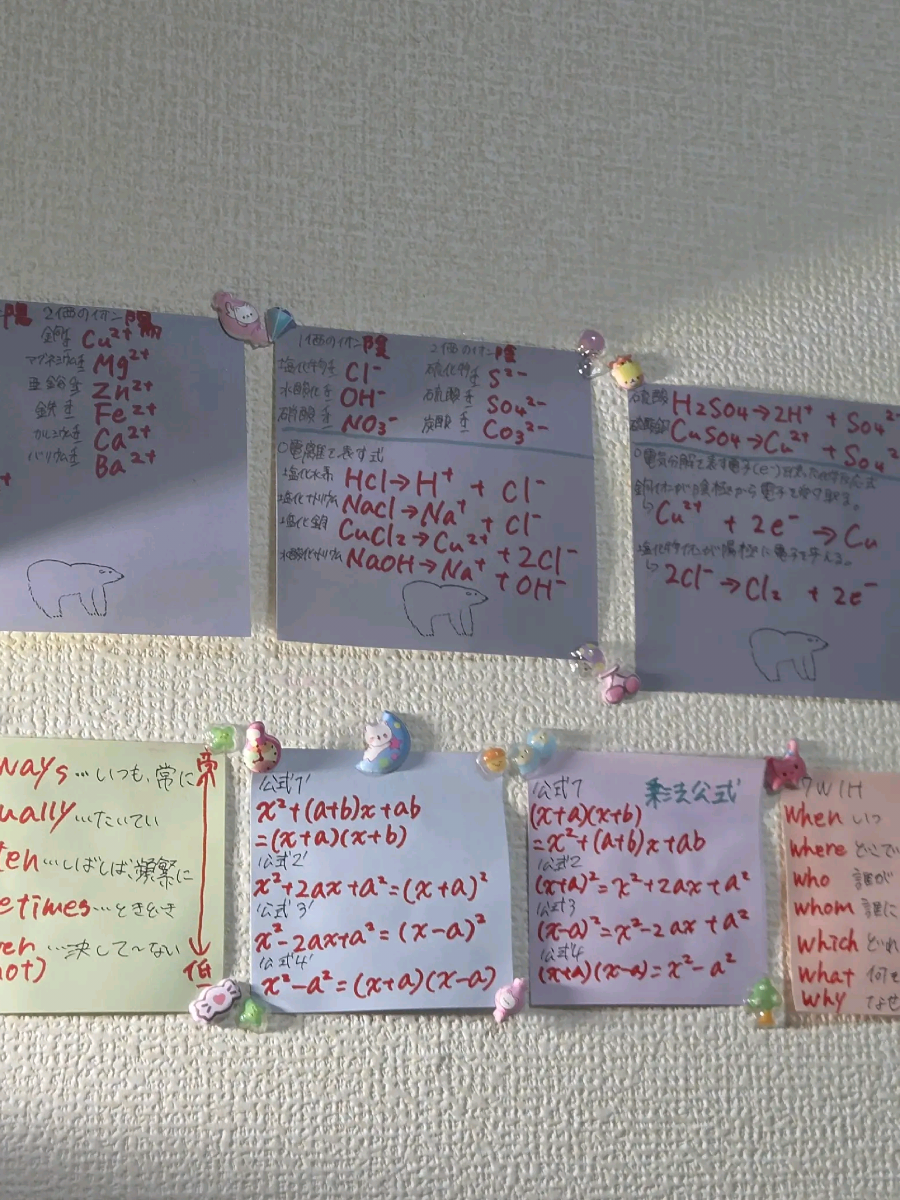 2価のイオン陽
銅 Cu²⁺
マグネシウム Mg²⁺
亜鉛 Zn²⁺
鉄 Fe²⁺
カルシウム Ca²⁺
バリウム Ba²⁺
1価のイオン陰 2価のイオン陰
塩化物 Cl⁻ 硫化物 S²⁻
水酸化 OH⁻ 硫酸 SO₄²⁻
硝酸 NO₃⁻ 炭酸 CO₃²⁻
○電離を表す式
塩化水素 HCl→H⁺ + Cl⁻
塩化ナトリウム NaCl→Na⁺ + Cl⁻
塩化銅 CuCl₂→Cu²⁺ + 2Cl⁻
水酸化ナトリウム NaOH→Na⁺ + OH⁻
硫酸 H₂SO₄→2H⁺ + SO₄²⁻
硫酸銅 CuSO₄→Cu²⁺ + SO₄²
○電気分解を表す電子(e⁻)
銅イオンが陰極から電子を受け取る。
↳Cu²⁺ + 2e⁻ → Cu
塩化物イオンが陽極に電子を与える。
↳2Cl⁻→Cl₂ + 2e⁻
ways…いつも、常に 常
ually…たいてい
ten…しばしば、頻繁に
etimes…ときどき
ver…決して~ない
not) 低
公式1'
x²+(a+b)x+ab
=(x+a)(x+b)
公式2'
x²+2ax+a²=(x+a)²
公式3'
x²-2ax+a²=(x-a)²
公式4'
x²-a²=(x+a)(x-a)
公式1 乗法公式
(x+a)(x+b)
=x²+(a+b)x+ab
公式2
(x+a)²=x²+2ax+a²
公式3
(x-a)²=x²-2ax+a²
公式4
(x+a)(x-a)=x²-a²
7W1H
when いつ
where どこで
who 誰が
whom 誰に
which どれ
what 何を
why なぜ